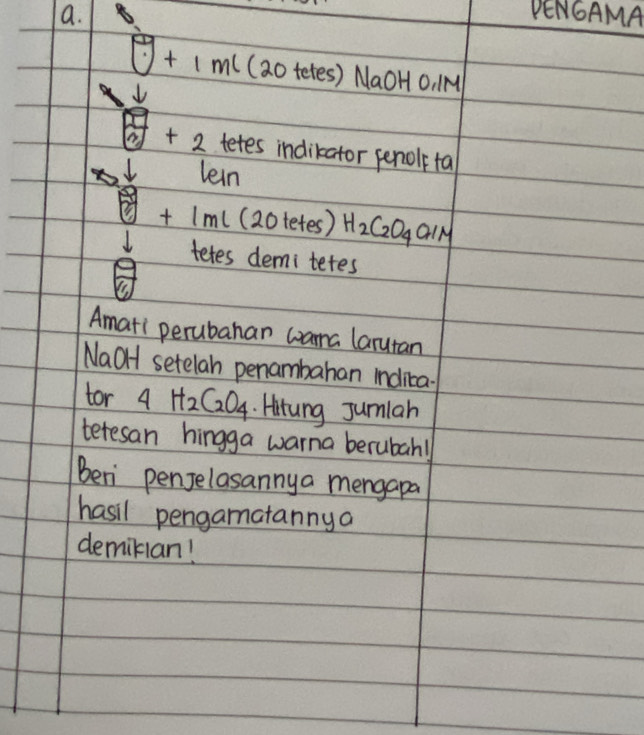 a.
PENGAMA
+ 1 ml (20 tetes) NaOH 0,1M
+ 2 tetes indikator fenolfta
lein
+ 1ml (20 tetes) H2C2O4 0,1M
tetes demi tetes
Amati perubahan warna larutan
NaOH setelah penambahan indika-
tor & H2C2O4. Hitung jumlah
tetesan hingga warna berubah!
Beri penjelasannya mengapa
hasil pengamatannya
demikian!